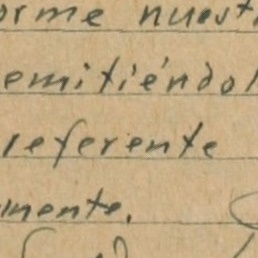 orme nuest
emitiéndol
referente
mente.